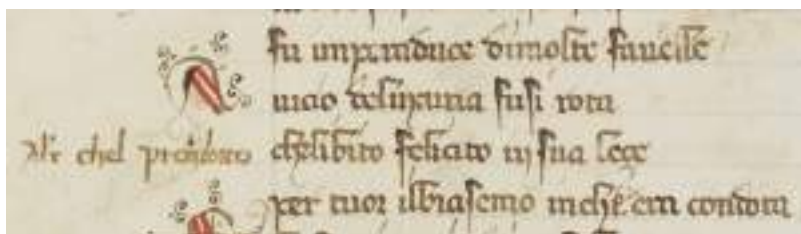 fu imperadrice dimolte fauelle
A uicio deluxuria fusi rota
chel prohibito chelibito felicito in sua lege
per tuor ilbiasemo inch era condota